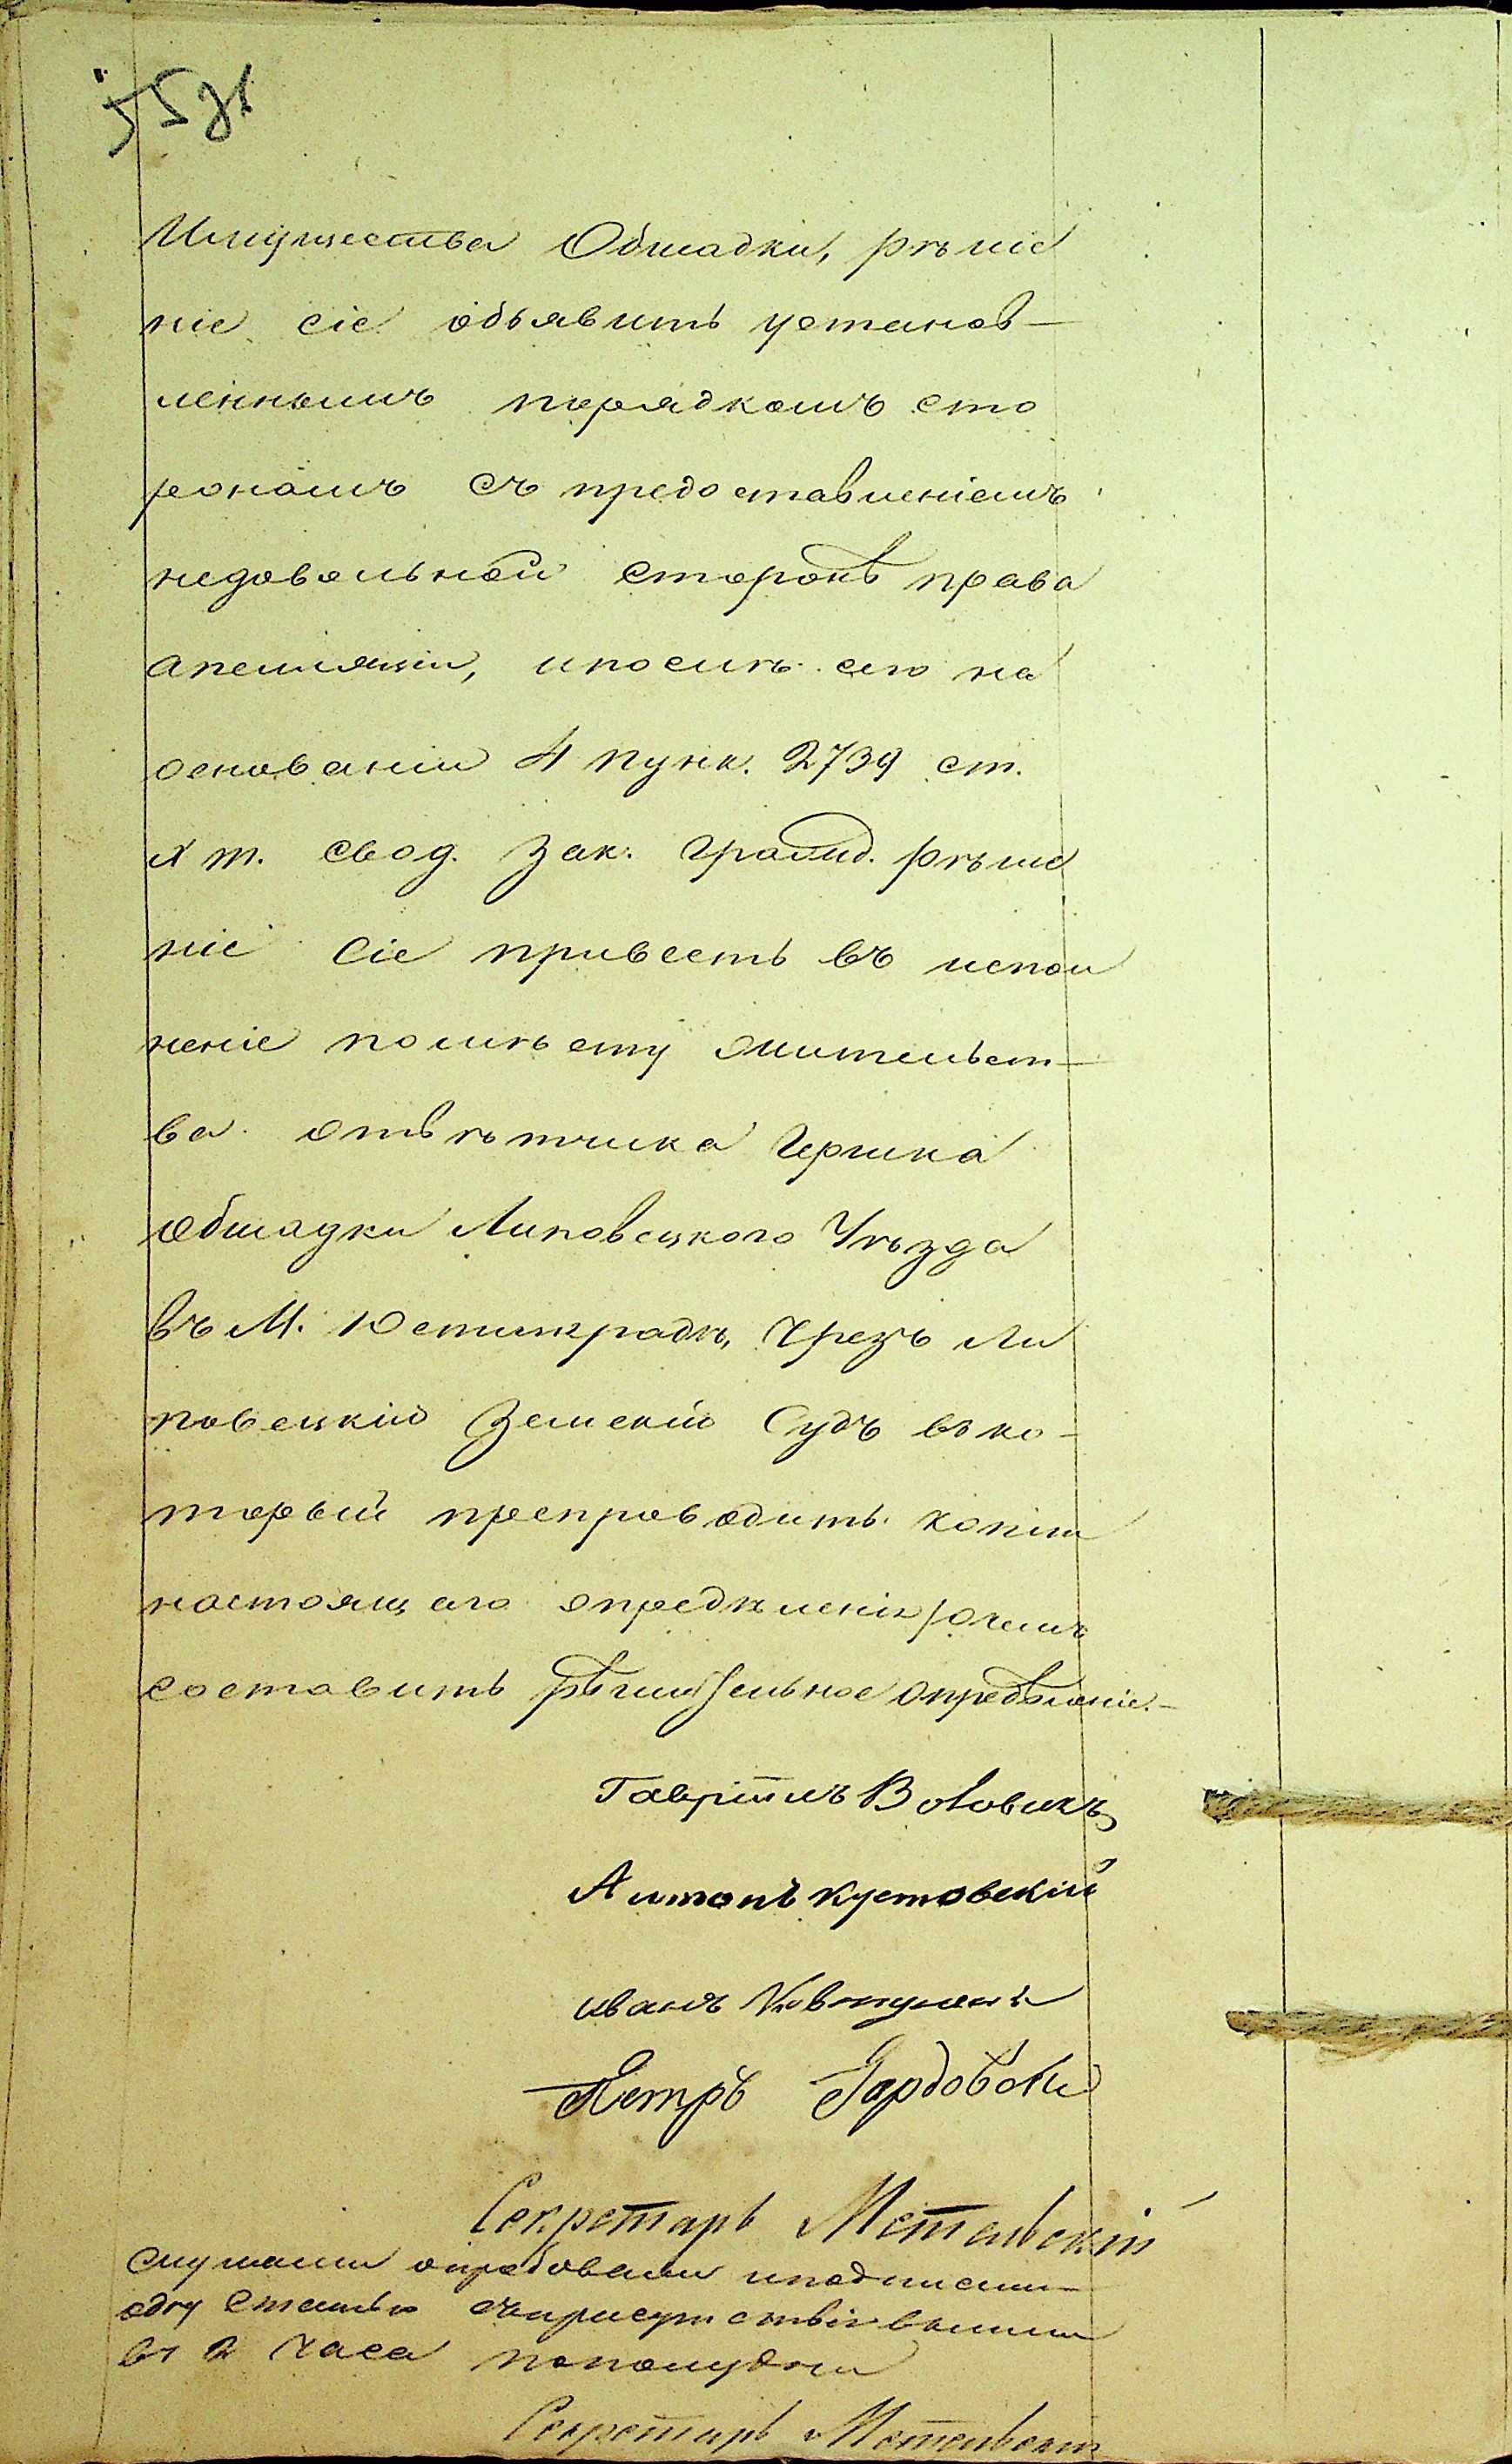 Имущества Обшадки, рѣше
ніе сіе объявить установ-
леннымъ порядкомъ сто
ронамъ съ предоставленіемъ
недовольной сторонѣ права
апелляціи, и послѣ сего на
основаніи 4 пунк. 2739 ст.
X т. свод. Зак. Гражд. рѣше
ніе сіе привесть въ испол
неніе по мѣсту жительст-
ва отвѣтчика Гершка
Обшадки Липовецкого Уѣзда
въ М. Юстинградѣ, чрезъ Ли
повецкій Земскій Судъ въ ко-
торый препроводить копіи
настоящего опредѣленія, о чемъ
составить рѣшительное опредѣленіе.-
Гавріилъ
Антонъ Кустовскій
Иванъ
Петръ
Секретарь Метельскій
Слушали и подписали
одну статью съ присутствія вышли
въ 2 часа пополудни
Секретарь Метельскій